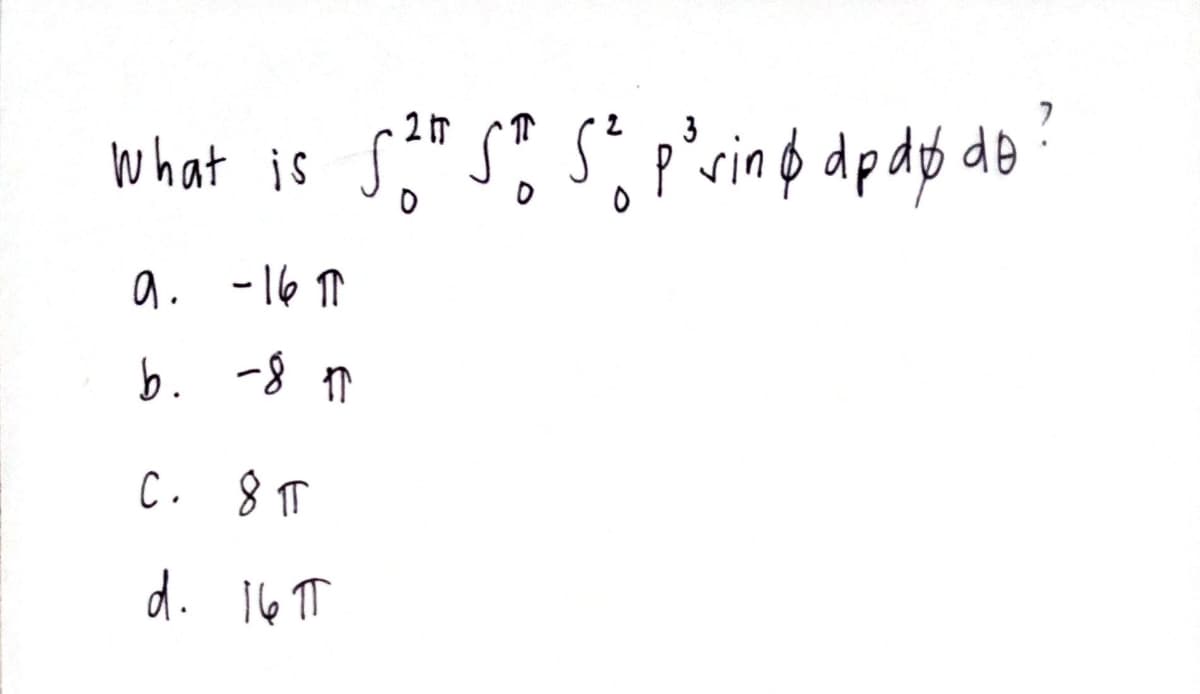 What is ∫₀^2π ∫₀^π ∫₀^2 ρ³ sin ϕ dρ dϕ dθ ?
a. -16 π
b. -8 π
c. 8 π
d. 16 π